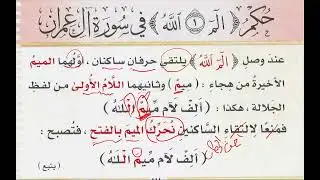 حُكْمُ ﴿ الٓمٓ ۝١ اللَّهُ ﴾ في سُورَةِ آلِ عِمْرَان
عندَ وصلِ ﴿ الٓمٓ اللَّهُ ﴾ يلتقي حرفان ساكنان ، أوَّلُهُما الميمُ
الأخيرةُ من هجاءِ : ( مِيمْ ) وثانيهما اللَّامُ الأُولىٰ من لفظِ
الجلالة ، هكذا : ( أَلِفْ لَآم مِّيٓمْ الْلَـٰهُ )
فمَنْعًا لِالتِقاءِ السَّاكنَينِ تُحَرَّكُ الميمُ بالفتحِ ، فتصبح :
( أَلِفْ لَآم مِّيمَ الْلَـٰهُ )
( يتبع )